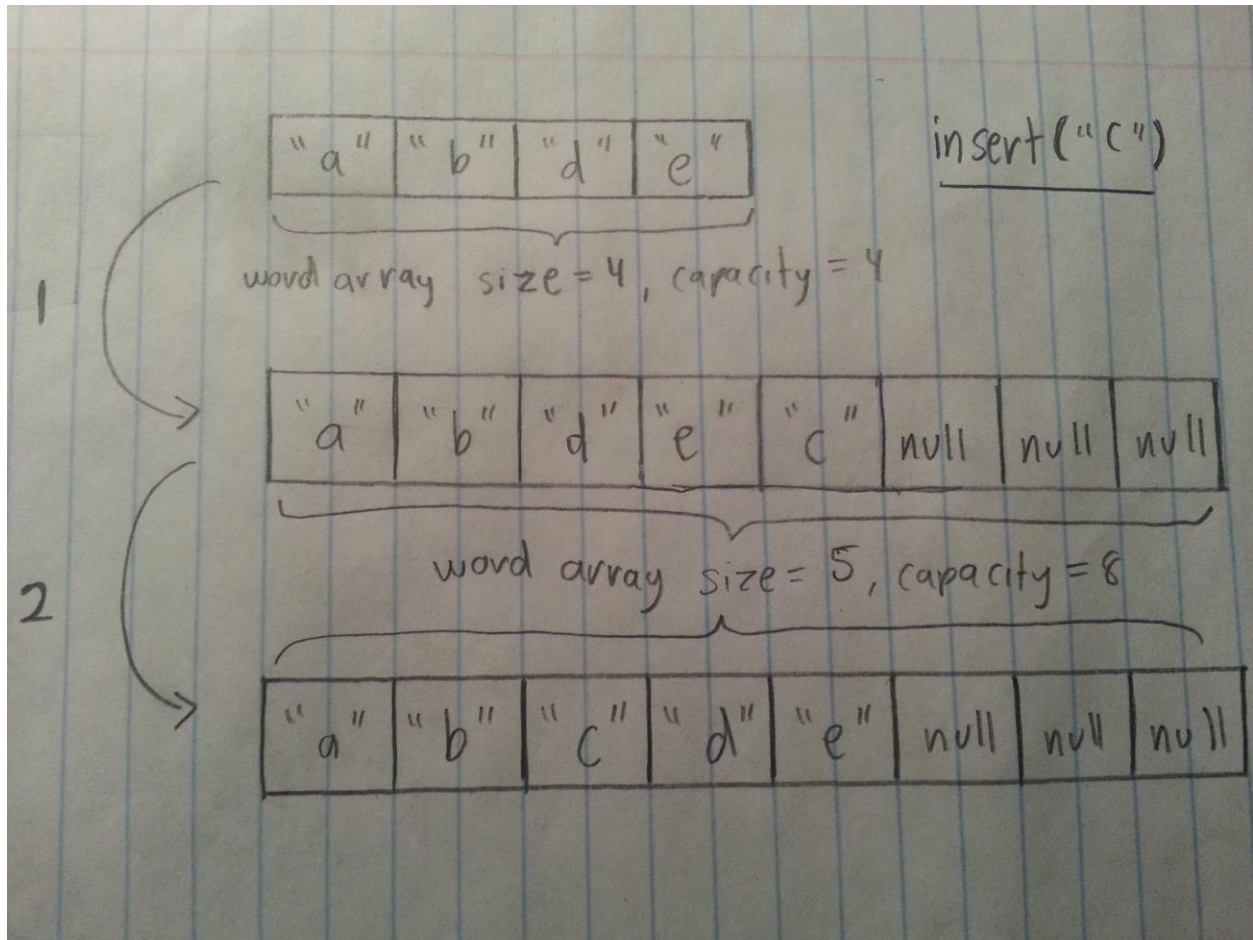 "a" "b" "d" "e"
insert("c")
word array size = 4, capacity = 4
1
"a" "b" "d" "e" "c" null null null
word array size = 5, capacity = 8
2
"a" "b" "c" "d" "e" null null null